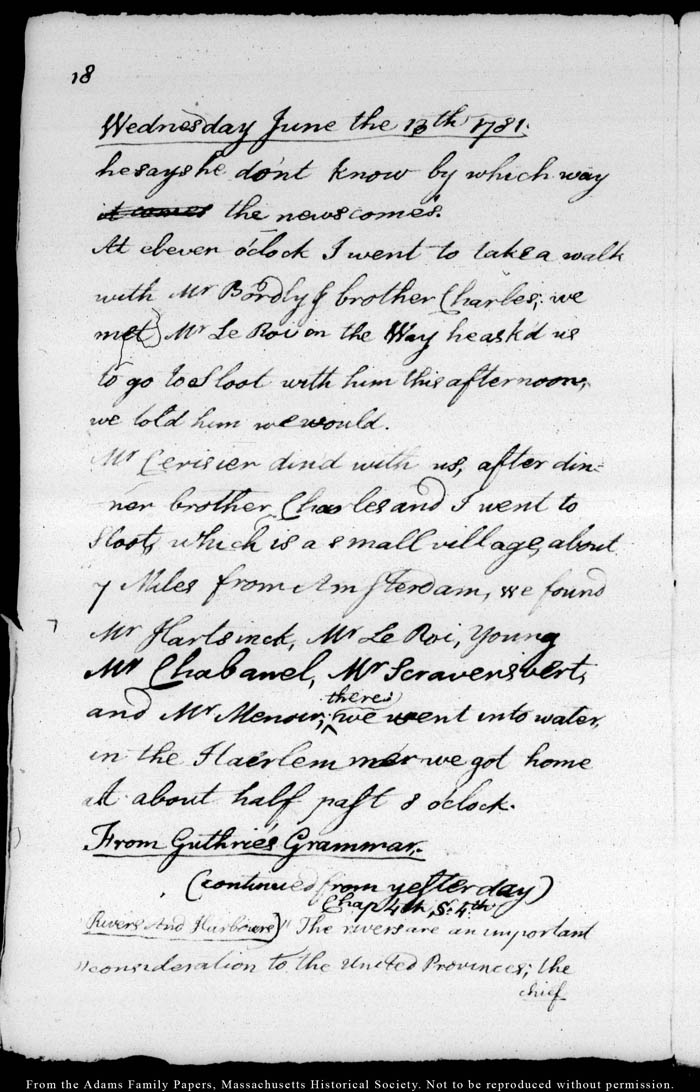 18
Wednesday June the 13th 1781.
he says he don't know by which way
it comes the news comes.
At eleven o'clock I went to take a walk
with Mr Bordly & brother Charles; we
met Mr Le Roi on the Way he ask'd us
to go to Sloot with him this afternoon,
we told him we would.
Mr Cerisier din'd with us, after din=
ner brother Charles and I went to
Sloot, which is a small village, about
7 Miles from Amsterdam, we found
Mr Hartsinck, Mr Le Roi, Young
Mr Chabanel, Mr Scravensvert,
there
and Mr Menoir; we went into water,
in the Haerlem mer we got home
at about half past 8 o'clock.
From Guthrie's Grammar.
(continued from yesterday)
Chap 4th, S. 4th
Rivers And Harbours) "The rivers are an important
"consideration to the United Provinces; the
chief
From the Adams Family Papers, Massachusetts Historical Society. Not to be reproduced without permission.